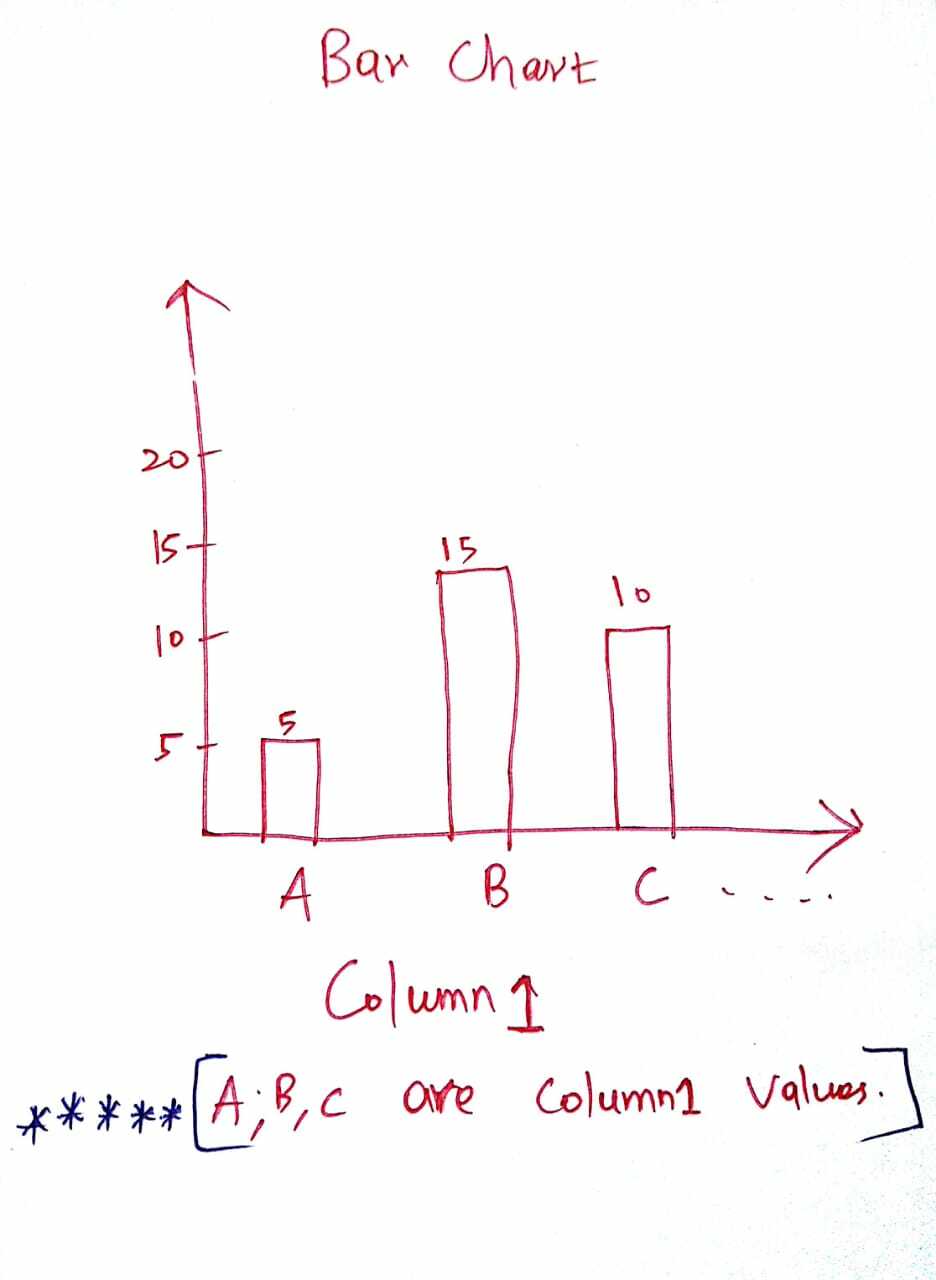 Bar Chart
20
15
15
10
10
5
5
A B C .....
Column 1
*****[A;B,C are Column1 Values.]